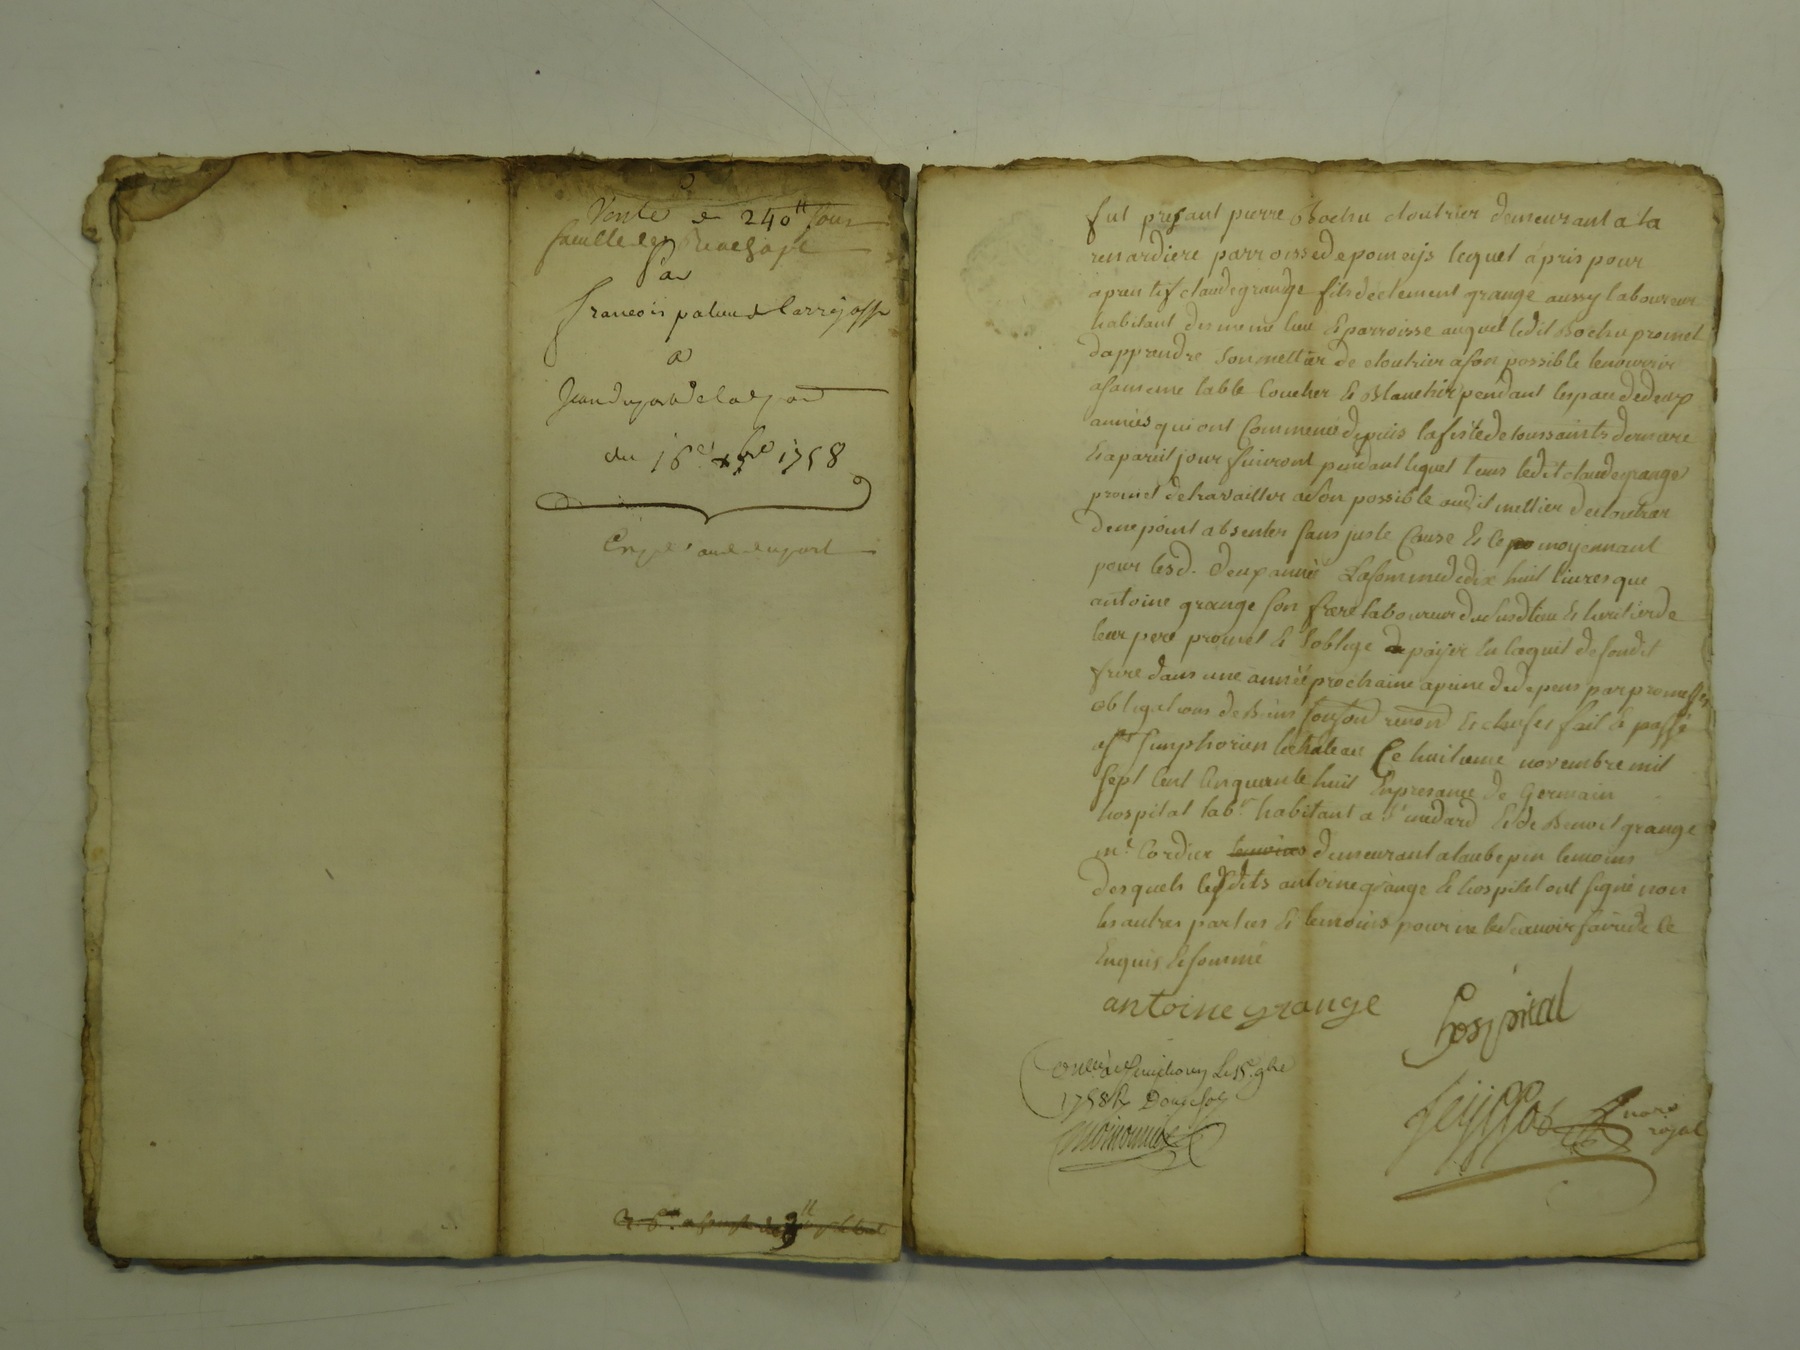 Vente de 240ᵗᵗ sous
faculté de Reachapt
Par
francois
a
Jean dupont de la
du 16ᵉ 1758
dupont
fut presant pierre Bochu cloutrier demeurant a la
renardiere parroisse de pomeijs lequel a pris pour
aprantif claude grange fils de clement grange aussy laboureur
habitant du meme lieu & parroisse auquel ledit Bochu promet
dapprandre son mettier de cloutrier a son possible le nourrir
a sa meme table coucher & Blanchir pendant lespace de deux
années qui ont Commencé depuis la feste de toussaints derniere
& a pareil jour finiront pendant lequel tems ledit claude grange
promet de travailler a son possible audit mettier de cloutrier
de ne point absenter sans juste Cause & ce moyennant
pour lesd. deux année La somme de dix huit livres que
antoine grange son frere laboureur du susd lieu & heritier de
leur pere promet & soblige de payer en laquit de sondit
frere dans une année prochaine a peine de depens par promesses
obligations de Biens renond & clauses fait & passé
a Sᵗ Simphorien le chateau Ce huitieme novembre mil
sept cent cinquante huit En presance de Germain
hospital labʳ habitant a Sᵗ medard & de Benoit grange
mᵉ Cordier temoins demeurant a laubepin temoins
desquels lesdits antoine grange & hospital ont signé non
les autres parties & temoins pour ne le scavoir faire de ce
Enquis & sommé
antoine grange
hospital
Conllé a Sᵗ Simphorien Le 15ᵉ 9bre
1758 R Douze sols
noʳᵉ
royal